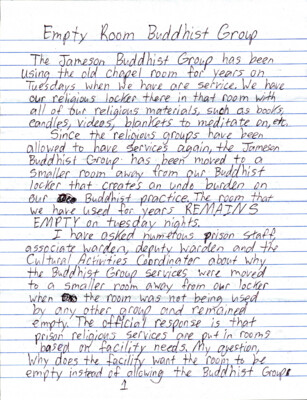 Empty Room Buddhist Group
The Jameson Buddhist Group has been
using the old chapel room for years on
Tuesdays when we have are service. We have
our religious locker there in that room with
all of our religious materials, such as books,
candles, videos, blankets to meditate on, etc.
Since the religious groups have been
allowed to have services again, the Jameson
Buddhist Group has been moved to a
smaller room away from our Buddhist
locker that creates an undo burden on
our Buddhist practice. The room that
we have used for years REMAINS
EMPTY on tuesday nights.
I have asked numerous prison staff,
associate warden, deputy warden and the
Cultural Activities Coordinator about why
the Buddhist Group services were moved
to a smaller room away from our locker
when the room was not being used
by any other group and remained
empty. The official response is that
prison religious services are put in rooms
based on facility needs. My question,
Why does the facility want the room to be
empty instead of allowing the Buddhist Group
1